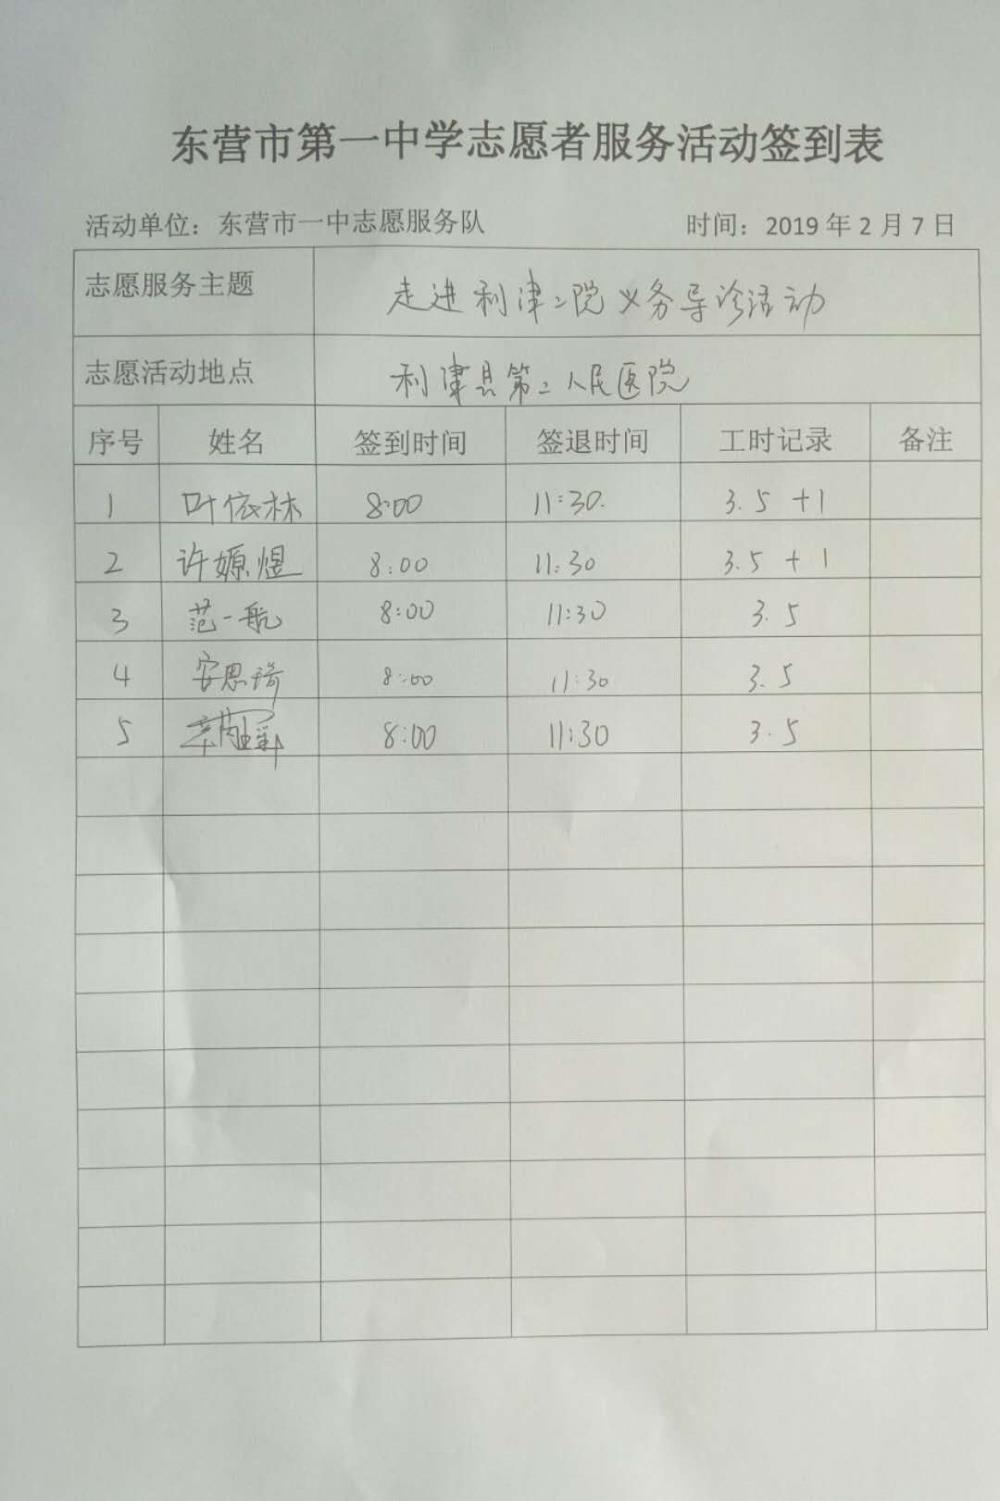 东营市第一中学志愿者服务活动签到表
活动单位：东营市一中志愿服务队 时间：2019 年 2 月 7 日
志愿服务主题 走进利津二院义务导诊活动
志愿活动地点 利津县第二人民医院
序号 姓名 签到时间 签退时间 工时记录 备注
1 叶依林 8:00 11:30. 3.5 +1
2 许嫄煜 8:00 11:30 3.5 + 1
3 范一航 8:00 11:30 3.5
4 安思琦 8:00 11:30 3.5
5 8:00 11:30 3.5